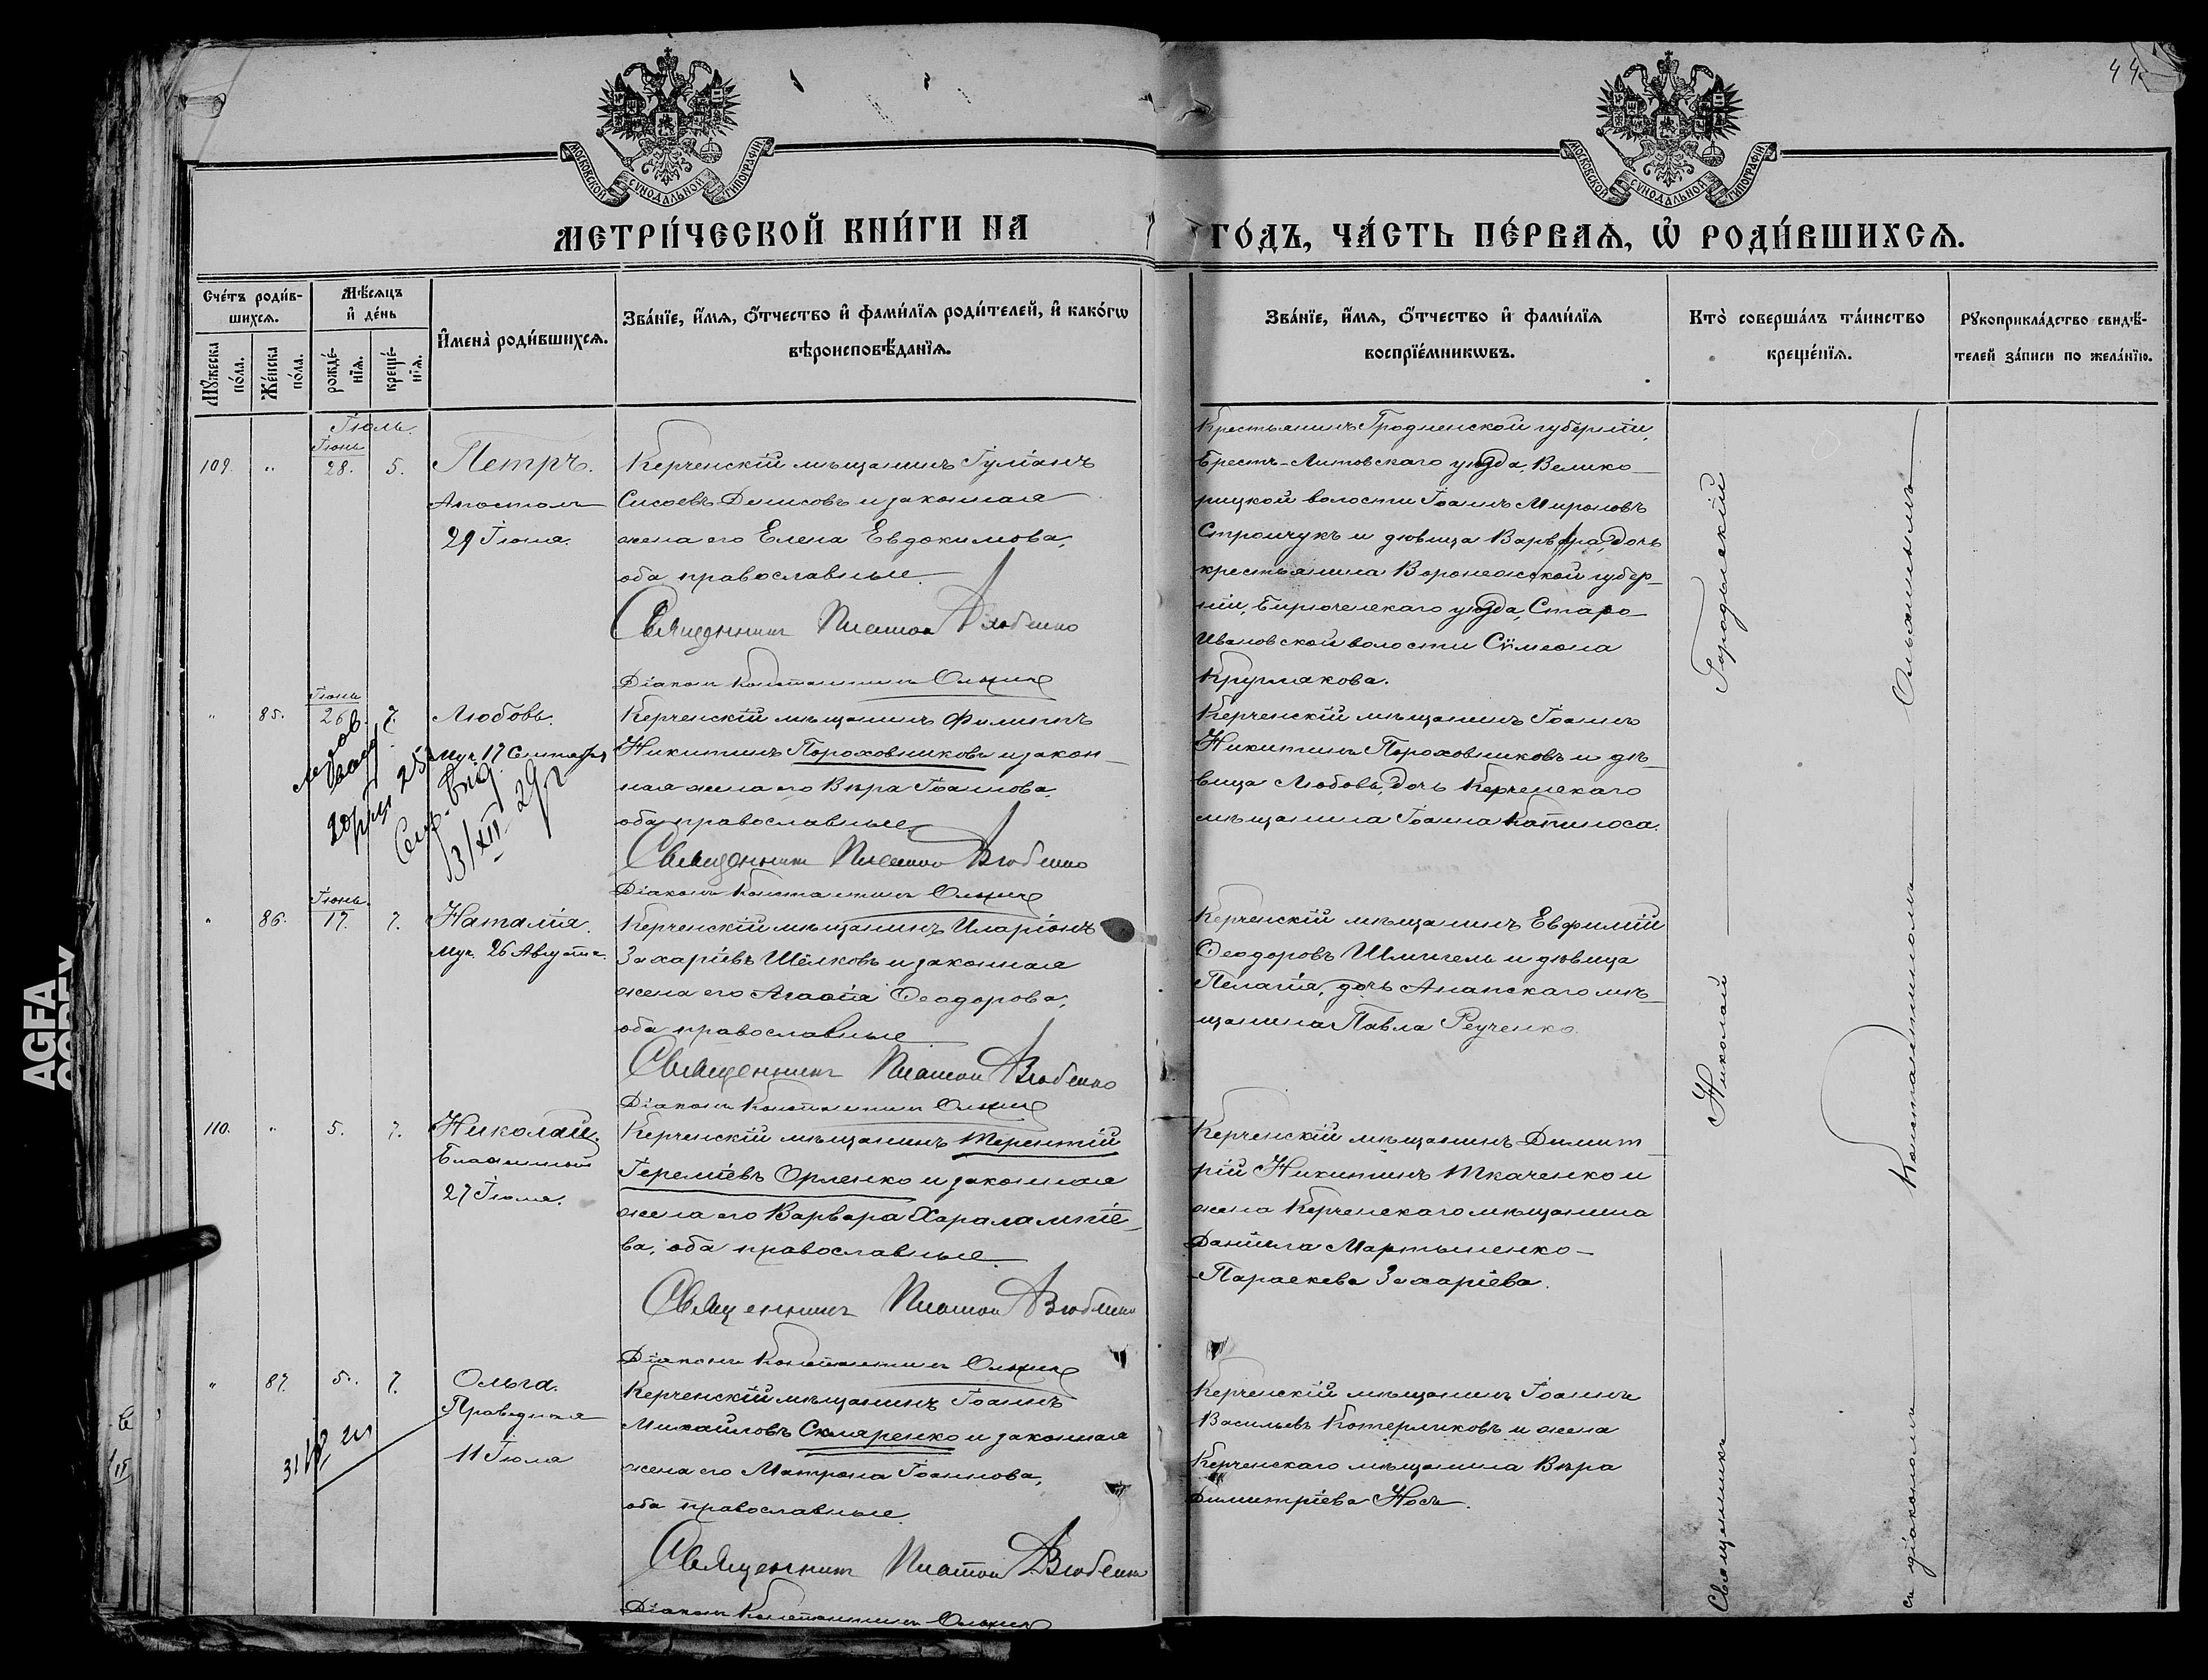 44
МОСКОВСКОЙ СѴНОДАЛЬНОЙ ТИПОГРАФІИ
МОСКОВСКОЙ СѴНОДАЛЬНОЙ ТИПОГРАФІИ
МЕТРИ́ЧЕСКОЙ КНИ́ГИ НА
ГО́ДЪ, ЧА́СТЬ ПЕ́РВАѦ, Ѡ РОДИ́ВШИХСѦ.
Сче́тъ роди́в-
шихсѧ.
Мꙋ́жеска
по́ла.
Же́нска
по́ла.
Мѣ́сѧцъ
и҆ де́нь
рожде́-
нїѧ.
креще́-
нїѧ.
И҆мена̀ роди́вшихсѧ.
Зва́нїе, и҆́мѧ, ѻ҆́тчество и҆ фами́лїѧ роди́телей, и҆ како́гѡ
вѣроисповѣ́данїѧ.
Зва́нїе, и҆́мѧ, ѻ҆́тчество и҆ фами́лїѧ
воспрїе́мникѡвъ.
Кто̀ соверша́лъ та́инство
креще́нїѧ.
Рꙋкоприкла́дство свидѣ́-
телей за́писи по жела́нїю.
Іюль.
Іюнь
109. " 28. 5.
Петръ.
Апостолъ
29 Іюня.
Керченскій мѣщанинъ Іуліанъ
Сисоевъ Денисовъ и законная
жена его Елена Евдокимова,
оба православные.
Священникъ Платон
Діаконъ Константинъ
Крестьянинъ Гродненской губерніи,
Брестъ-Литовскаго уѣзда, Велико-
рицкой волости Іоаннъ Мироновъ
Стромчукъ и дѣвица Варвара, дочь
крестьянина Воронежской губер-
ніи, Бирюченскаго уѣзда, Старо
Ивановской волости Сѵмеона
Круглякова.
Іюнь
" 85. 26. 7.
Любовь.
Муч. 17 Сентября
13/XII 29 г
Керченскій мѣщанинъ Филиппъ
Никитинъ Пороховниковъ и закон-
ная жена его Вѣра Іоаннова,
оба православные.
Священникъ Платон
Діаконъ Константинъ
Керченскій мѣщанинъ Іоаннъ
Никитинъ Пороховниковъ и дѣ-
вица Любовь, дочь Керченскаго
мѣщанина Іоанна Капиноса.
Іюнь.
" 86. 17. 7.
Наталія.
Муч. 26 Августа.
Керченскій мѣщанинъ Иларіонъ
Захаріевъ Шёлковъ и законная
жена его Агаѳія Ѳеодорова,
оба православные.
Священникъ Платон
Діаконъ Константинъ
Керченскій мѣщанинъ Евфимій
Ѳеодоровъ Шмигель и дѣвица
Пелагія, дочь Анапскаго мѣ-
щанина Павла Реученко.
110. " 5. 7.
Николай.
Блаженный
27 Іюля.
Керченскій мѣщанинъ Терентій
Іереміевъ Орленко и законная
жена его Варвара Харалампіе-
ва, оба православные.
Священникъ Платон
Діаконъ Константинъ
Керченскій мѣщанинъ Димит
рій Никитинъ Ткаченко и
жена Керченскаго мѣщанина
Даніила Мартыненко-
Параскева Захаріева.
" 87. 5. 7.
Ольга.
Праведная
11 Іюля
Керченскій мѣщанинъ Іоаннъ
Михайловъ Скляренко и законная
жена его Матрона Іоаннова,
оба православные.
Священникъ Платон
Діаконъ Константинъ
Керченскій мѣщанинъ Іоаннъ
Васильевъ Котерликовъ и жена
Керченскаго мѣщанина Вѣра
Димитріева Носъ.
Священникъ Николай Городынскій
съ діакономъ Константиномъ
AGFA